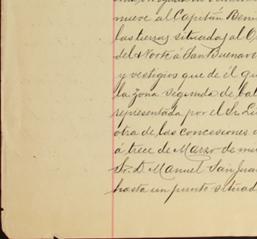 nueve al Capitán Beni
las tierras situadas al O
del Norte á San Buenav
y vestigios que de él qu
la zona segunda de Cal
representada por el Sr. Li
otra de las concesiones
á trece de Marzo de m
Sr. D. Manuel Sanjua
hasta un punto situad